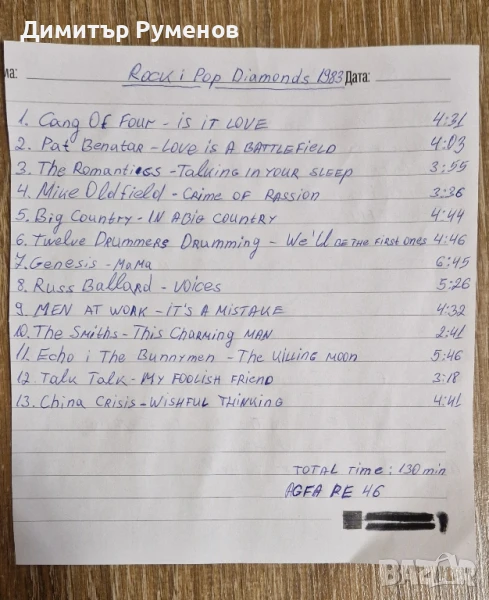 Димитър Руменов
ма: Rock i Pop Diamonds 1983 Дата:
1. Cang Of Four - is iT LOVE 4:31
2. Pat Benatar - LOVE iS A BATTLEFiELD 4:03
3. The Romantics - Talking IN YOUR SLEEP 3:55
4. Mike Oldfield - Crime OF PASSiON 3:36
5. Big Country - IN A BiG COUNTRY 4:44
6. Twelve Drummers Drumming - We'll BE THE FiRST ONES 4:46
7. Genesis - MaMa 6:45
8. Russ Ballard - VOiCES 5:26
9. MEN AT WORK - iT'S A MiSTAKE 4:32
10. The Smiths - This Charming MAN 2:41
11. Echo i The Bunnymen - The Killing moon 5:46
12. Talk Talk - MY FOOLiSH FRiEND 3:18
13. China CRiSiS - WiSHFUL THiNKiNG 4:41
TOTAL Time: 130 min
AGFA PE 46
BAZAR